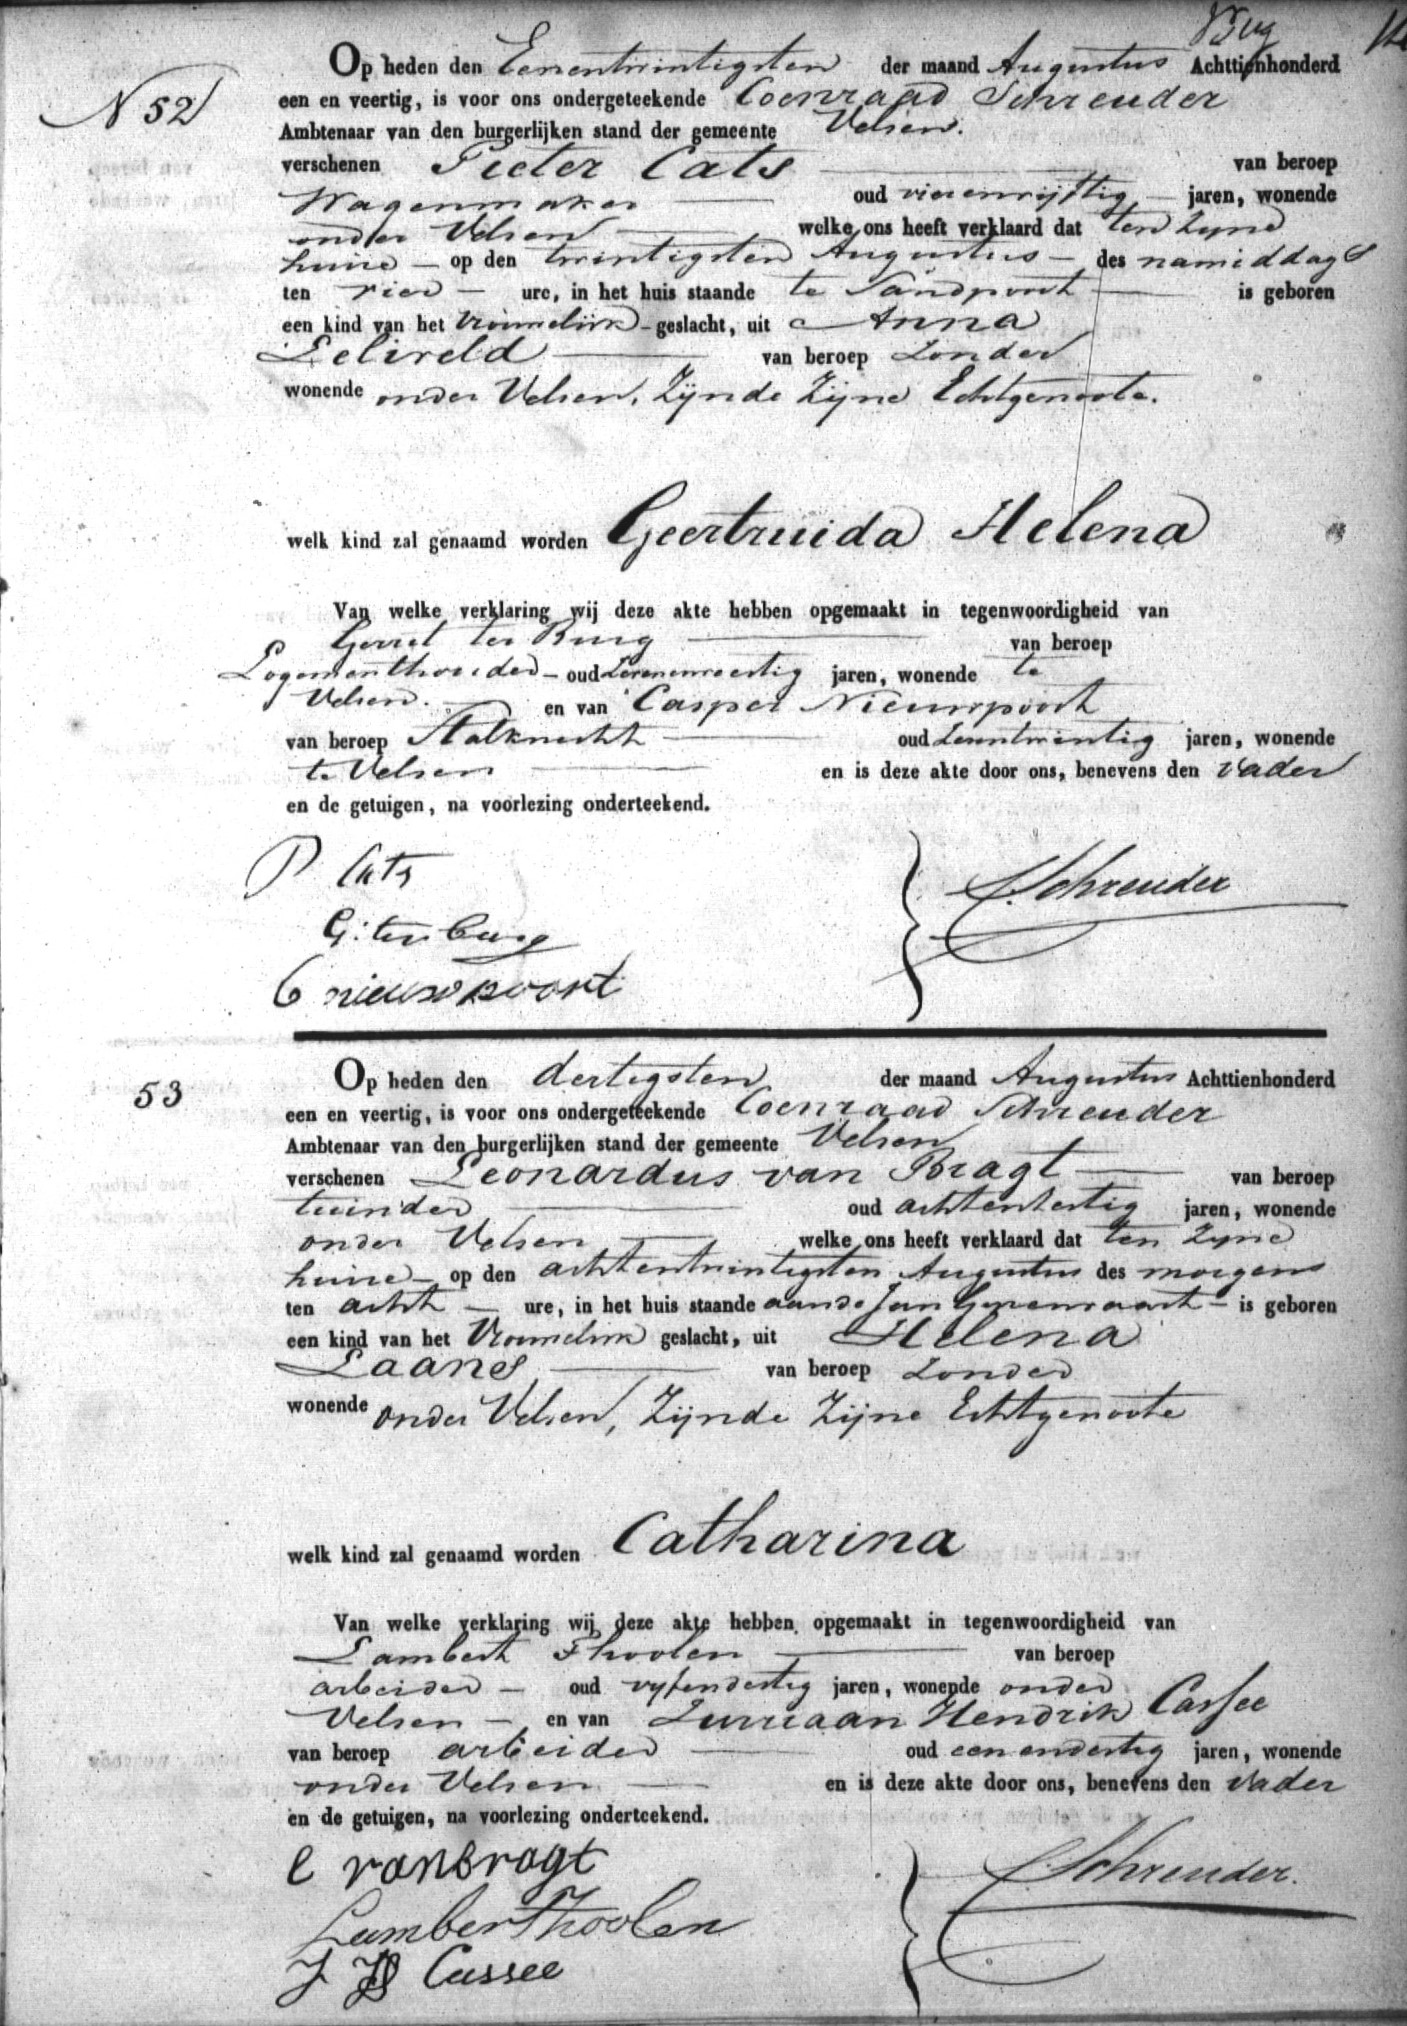 N 52
Op heden den Eenentwintigsten der maand Augustus Achttienhonderd
een en veertig, is voor ons ondergeteekende Coenraad Schreuder
Ambtenaar van den burgerlijken stand der gemeente Velsen.
verschenen Pieter Cats van beroep
Wagenmaker oud vierenvijftig jaren, wonende
onder Velsen welke ons heeft verklaard dat ten Zyne
huize op den twintigsten Augustus des namiddags
ten vier ure, in het huis staande te Sandpoort is geboren
een kind van het Vrouwelijk geslacht, uit Anna
Leliveld van beroep Zonder
wonende onder Velsen, Zijnde Zijne Echtgenoote.
welk kind zal genaamd worden Geertruida Helena
Van welke verklaring wij deze akte hebben opgemaakt in tegenwoordigheid van
Gerret ter Burg van beroep
Logementhouder oud Zevenenveertig jaren, wonende te
Velsen. en van Casper Nieuwpoort
van beroep Stalknecht oud Zesentwintig jaren, wonende
te Velsen en is deze akte door ons, benevens den vader
en de getuigen, na voorlezing onderteekend.
P Cats
C. Schreuder
G: ter Burg
C nieuwpoort
53
Op heden den dertigsten der maand Augustus Achttienhonderd
een en veertig, is voor ons ondergeteekende Coenraad Schreuder
Ambtenaar van den burgerlijken stand der gemeente Velsen
verschenen Leonardus van Bragt van beroep
tuinder oud achtendertig jaren, wonende
onder Velsen welke ons heeft verklaard dat ten Zyne
huize op den achtentwintigsten Augustus des morgens
ten acht ure, in het huis staande aan de Jan Gyzenvaart is geboren
een kind van het Vrouwelijk geslacht, uit Helena
Laanes van beroep Zonder
wonende onder Velsen, Zijnde Zijne Echtgenoote
welk kind zal genaamd worden Catharina
Van welke verklaring wij deze akte hebben opgemaakt in tegenwoordigheid van
Lambert Thoolen van beroep
arbeider oud vyfendertig jaren, wonende onder
Velsen en van Jurriaan Hendrik Cassee
van beroep arbeider oud eenendertig jaren, wonende
onder Velsen en is deze akte door ons, benevens den Vader
en de getuigen, na voorlezing onderteekend.
l vanbragt
C. Schreuder.
Lambert Thoolen
J H Cassee